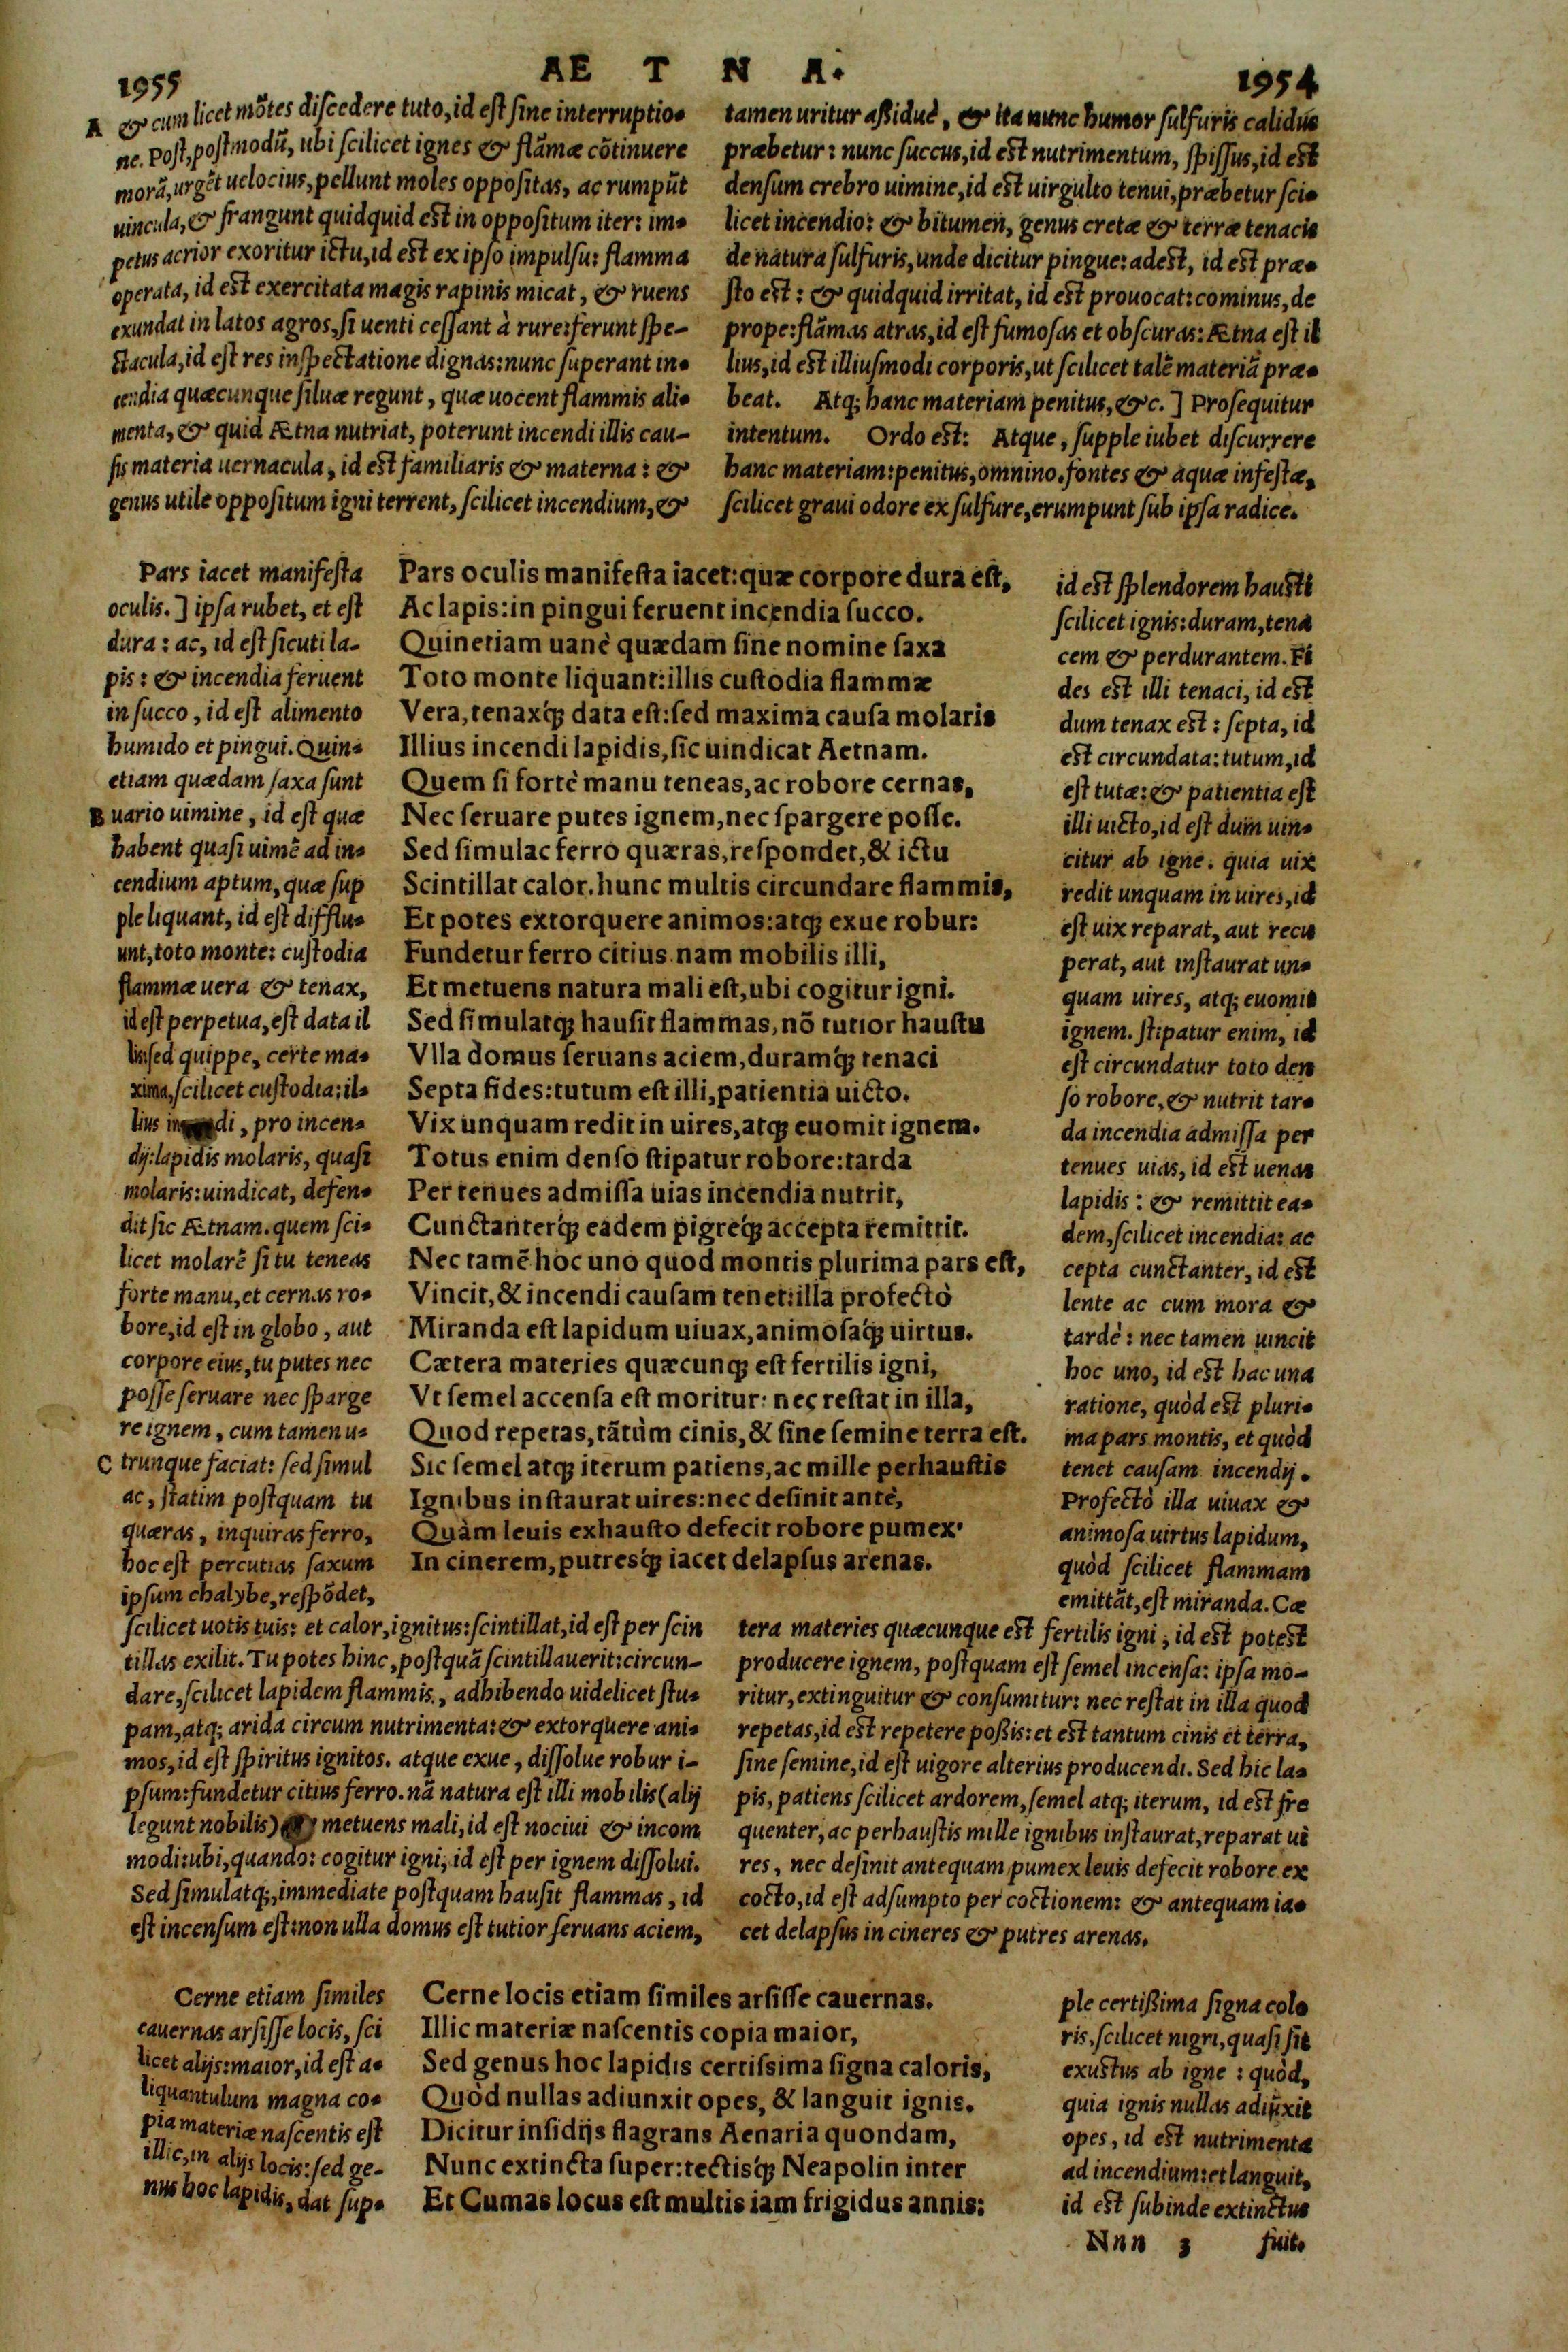 1955
AE T N A.
1954
A & cum licet mõtes discedere tuto, id est sine interruptio-
ne. Post, postmodũ, ubi scilicet ignes & flãmæ cõtinuere
morã, urgẽt uelocius, pellunt moles oppositas, ac rumpũt
uincula, & frangunt quidquid est in oppositum iter: im-
petus acrior exoritur ictu, id est ex ipso impulsu: flamma
operata, id est exercitata magis rapinis micat, & ruens
exundat in latos agros, si uenti cessant à rure: ferunt spe-
ctacula, id est res inspectatione dignas: nunc superant in-
cendia quæcunque siluæ regunt, quæ uocent flammis ali-
menta, & quid Ætna nutriat, poterunt incendi illis cau-
sis materia uernacula, id est familiaris & materna: &
genus utile oppositum igni terrent, scilicet incendium, &
tamen uritur aßiduè, & ita nunc humor sulfuris calidus
præbetur: nunc succus, id est nutrimentum, spissus, id est
densum crebro uimine, id est uirgulto tenui, præbetur sci-
licet incendio: & bitumen, genus cretæ & terræ tenacis
de natura sulfuris, unde dicitur pingue: adest, id est præ-
sto est: & quidquid irritat, id est prouocat: cominus, de
prope: flãmas atras, id est fumosas et obscuras: Ætna est il
lius, id est illiusmodi corporis, ut scilicet talẽ materiã præ-
beat. Atq; hanc materiam penitus, &c. ] Prosequitur
intentum. Ordo est: Atque, supple iubet discurrere
hanc materiam: penitus, omnino. fontes & aquæ infestæ,
scilicet graui odore ex sulfure, erumpunt sub ipsa radice.
Pars iacet manifesta
oculis. ] ipsa rubet, et est
dura: ac, id est sicuti la-
pis: & incendia feruent
in succo, id est alimento
humido et pingui. Quin-
etiam quædam saxa sunt
B uario uimine, id est quæ
habent quasi uimẽ ad in-
cendium aptum, quæ sup
ple liquant, id est difflu-
unt, toto monte: custodia
flammæ uera & tenax,
id est perpetua, est data il
lis: sed quippe, certe ma-
xima, scilicet custodia: il-
lius di, pro incen-
dij: lapidis molaris, quasi
molaris: uindicat, defen-
dit sic Ætnam. quem sci-
licet molarẽ si tu teneas
forte manu, et cernas ro-
bore, id est in globo, aut
corpore eius, tu putes nec
posse seruare nec sparge
re ignem, cum tamen u-
C trunque faciat: sed simul
ac, statim postquam tu
quæras, inquiras ferro,
hoc est percutias saxum
ipsum chalybe, respõdet,
Pars oculis manifesta iacet: quæ corpore dura est,
Ac lapis: in pingui feruent incendia succo.
Quinetiam uanè quædam sine nomine saxa
Toto monte liquant: illis custodia flammæ
Vera, tenaxq́; data est: sed maxima causa molaris
Illius incendi lapidis, sic uindicat Aetnam.
Quem si fortè manu teneas, ac robore cernas,
Nec seruare putes ignem, nec spargere posse.
Sed simulac ferro quæras, respondet, & ictu
Scintillat calor. hunc multis circundare flammis,
Et potes extorquere animos: atq; exue robur:
Fundetur ferro citius. nam mobilis illi,
Et metuens natura mali est, ubi cogitur igni.
Sed simulatq; hausit flammas, nõ tutior haustu
Vlla domus seruans aciem, duramq́; tenaci
Septa fides: tutum est illi, patientia uicto.
Vix unquam redit in uires, atq; euomit ignem.
Totus enim denso stipatur robore: tarda
Per tenues admissa uias incendia nutrit,
Cunctanterq́; eadem pigreq́; accepta remittit.
Nec tamẽ hoc uno quod montis plurima pars est,
Vincit, & incendi causam tenet: illa profectò
Miranda est lapidum uiuax, animosaq́; uirtus.
Cætera materies quæcunq; est fertilis igni,
Vt semel accensa est moritur: nec restat in illa,
Quod repetas, tãtùm cinis, & sine semine terra est.
Sic semel atq; iterum patiens, ac mille perhaustis
Ignibus instaurat uires: nec desinit antè,
Quàm leuis exhausto defecit robore pumex.
In cinerem, putresq́; iacet delapsus arenas.
id est splendorem hausti
scilicet ignis: duram, tena
cem & perdurantem. Fi
des est illi tenaci, id est
dum tenax est: septa, id
est circundata: tutum, id
est tutæ: & patientia est
illi uicto, id est dum uin-
citur ab igne. quia uix
redit unquam in uires, id
est uix reparat, aut recu
perat, aut instaurat un-
quam uires, atq; euomit
ignem. stipatur enim, id
est circundatur toto den
so robore, & nutrit tar-
da incendia admissa per
tenues uias, id est uenas
lapidis: & remittit ea-
dem, scilicet incendia: ac
cepta cunctanter, id est
lente ac cum mora &
tardè: nec tamen uincit
hoc uno, id est hac una
ratione, quòd est pluri-
ma pars montis, et quòd
tenet causam incendij.
Profectò illa uiuax &
animosa uirtus lapidum,
quòd scilicet flammam
emittãt, est miranda. Cæ
scilicet uotis tuis: et calor, ignitus: scintillat, id est per scin
tillas exilit. Tu potes hinc, postquã scintillauerit: circun-
dare, scilicet lapidem flammis, adhibendo uidelicet stu-
pam, atq; arida circum nutrimenta: & extorquere ani-
mos, id est spiritus ignitos. atque exue, dissolue robur i-
psum: fundetur citius ferro. nã natura est illi mobilis (alij
legunt nobilis) metuens mali, id est nociui & incom
modi: ubi, quando: cogitur igni, id est per ignem dissolui.
Sed simulatq;, immediate postquam hausit flammas, id
est incensum est: non ulla domus est tutior seruans aciem,
tera materies quæcunque est fertilis igni, id est potest
producere ignem, postquam est semel incensa: ipsa mo-
ritur, extinguitur & consumitur: nec restat in illa quod
repetas, id est repetere poßis: et est tantum cinis et terra,
sine semine, id est uigore alterius producendi. Sed hic la-
pis, patiens scilicet ardorem, semel atq; iterum, id est fre
quenter, ac perhaustis mille ignibus instaurat, reparat ui
res, nec desinit antequam pumex leuis defecit robore ex
cocto, id est adsumpto per coctionem: & antequam ia-
cet delapsus in cineres & putres arenas.
Cerne etiam similes
cauernas arsisse locis, sci
licet alijs: maior, id est a-
liquantulum magna co-
pia materiæ nascentis est
illic, in alijs locis: sed ge-
nus hoc lapidis, dat sup-
Cerne locis etiam similes arsisse cauernas.
Illic materiæ nascentis copia maior,
Sed genus hoc lapidis certissima signa caloris,
Quòd nullas adiunxit opes, & languit ignis.
Dicitur insidijs flagrans Aenaria quondam,
Nunc extincta super: tectisq́; Neapolin inter
Et Cumas locus est multis iam frigidus annis:
ple certißima signa colo
ris, scilicet nigri, quasi sit
exustus ab igne: quòd,
quia ignis nullas adiũxit
opes, id est nutrimenta
ad incendium: et languit,
id est subinde extinctus
Nnn 3 fuit.